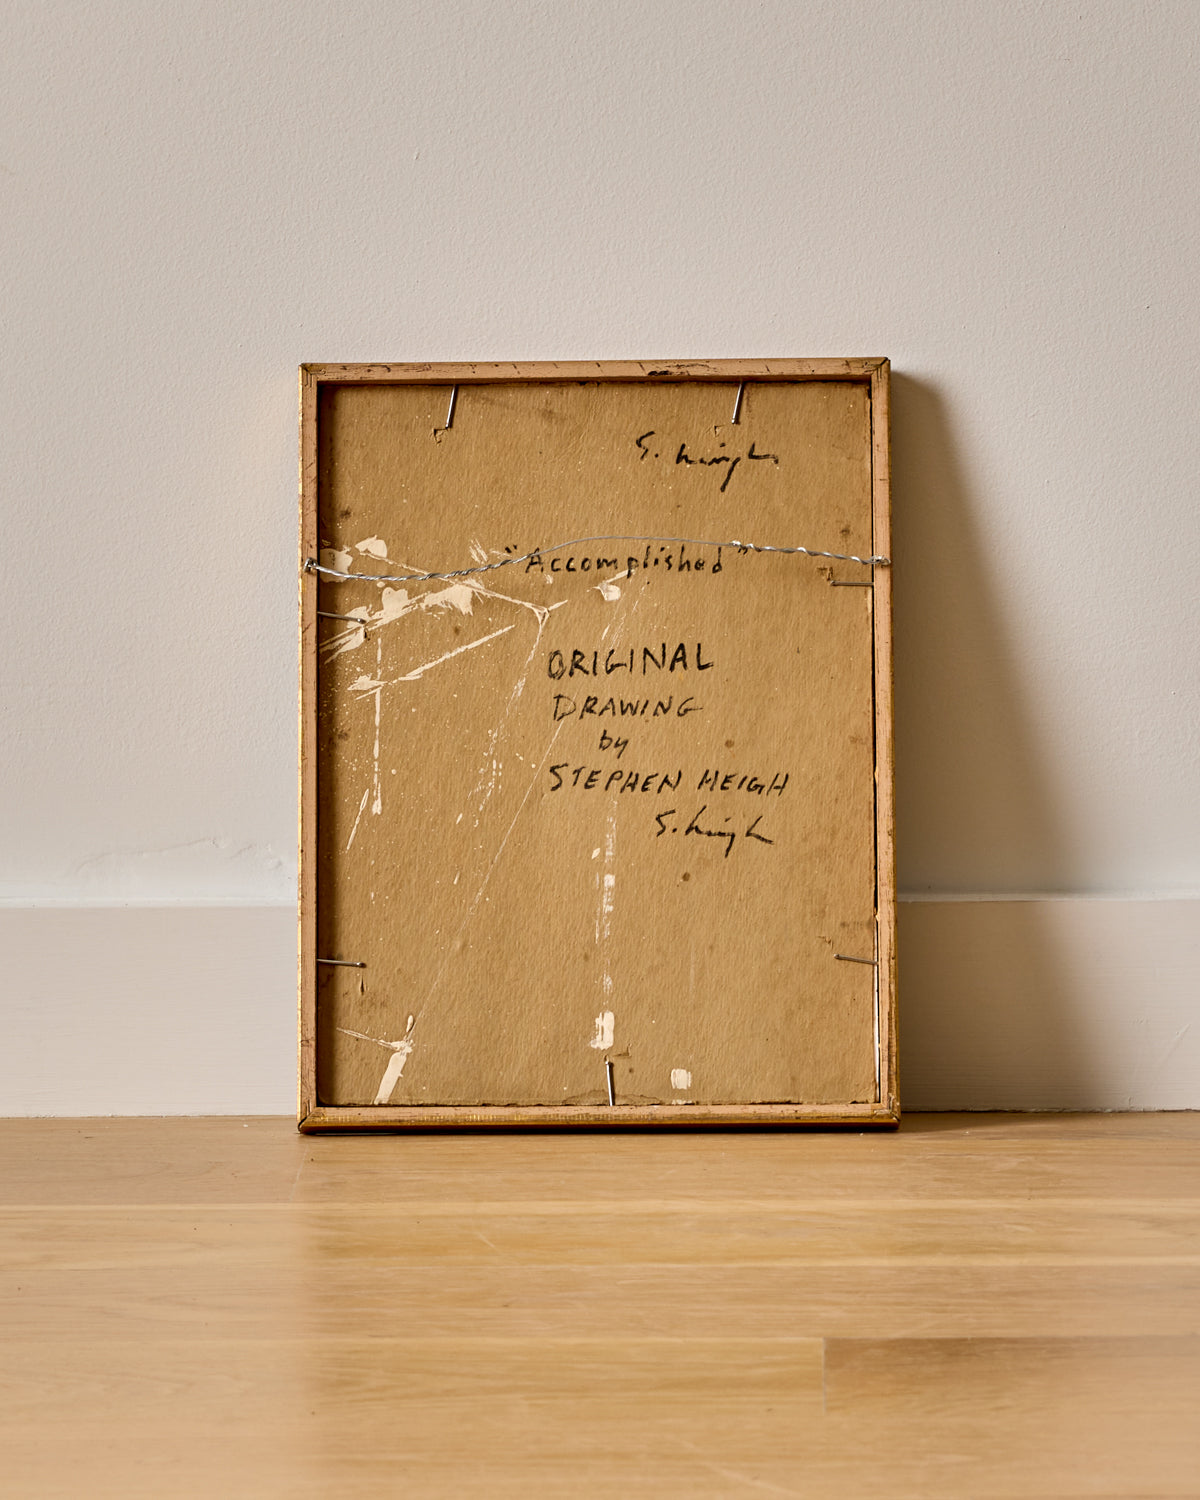 S. Heigh
"Accomplished"
ORIGINAL
DRAWING
by
STEPHEN HEIGH
S. Heigh